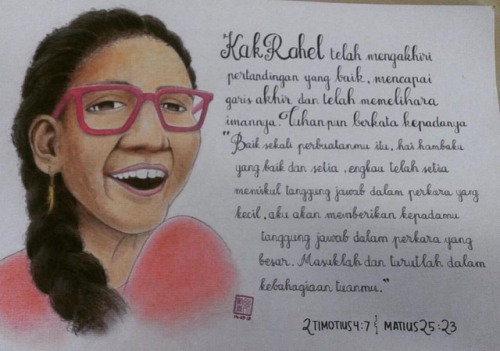 Kak Rahel telah mengakhiri
pertandingan yang baik, mencapai
garis akhir dan telah memelihara
imannya. Tuhanpun berkata kepadanya
"Baik sekali perbuatanmu itu, hai hambaku
yang baik dan setia, engkau telah setia
memikul tanggung jawab dalam perkara yang
kecil, aku akan memberikan kepadamu
tanggung jawab dalam perkara yang
besar. Masuklah dan turutlah dalam
kebahagiaan tuanmu."
2 TIMOTIUS 4:7 & MATIUS 25:23